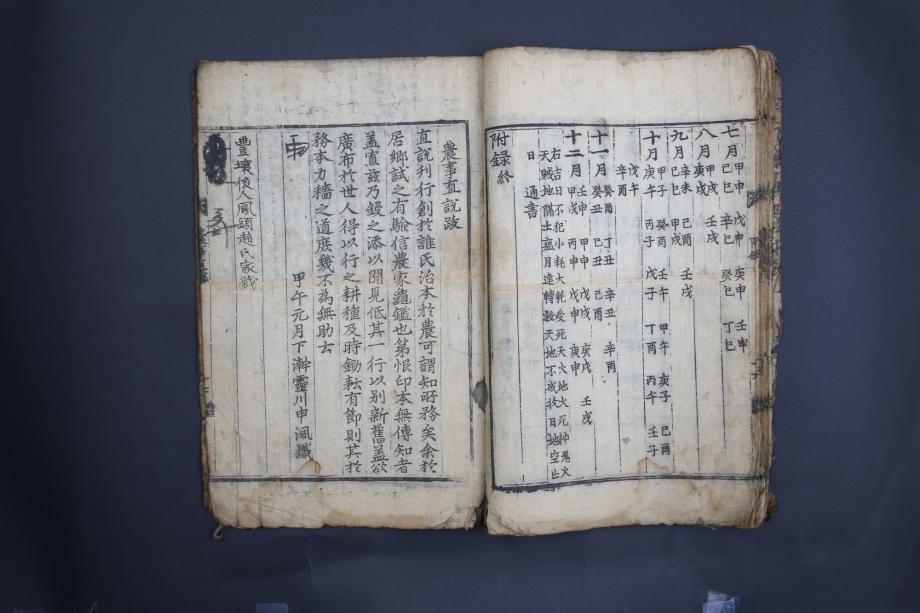 七月 甲申 戊申 庚申 壬申
己巳 辛巳 癸巳 丁巳
八月 甲戌 壬戌
庚戌
九月 辛未 己酉 壬戌
己巳 甲戌
十月 甲子 癸酉 壬午 甲午 庚子 己酉
庚午 丙子 戊子 丁酉 丙午 壬子
戊午
辛酉
十一月 癸酉 丁丑 辛丑 辛酉
癸丑 己丑 己酉
十二月 壬申 甲申 庚戌 壬戌
甲戌 丙申 戊申 庚申
右吉日不犯小耗大耗受死天火地火死神鬼火
天賊地 土瘟月建轉殺天地不成收日地空亡
日 通書
附録終
農事直說跋
直說刊行創於誰氏治本於農可謂知所務矣余於
居鄕試之有驗信農家龜鑑也第恨印本無傳知者
蓋寡玆乃鋟之添以聞見低其一行以别新舊盖欲
廣布於世人得以行之耕種及時鋤耘有節則其於
務本力穡之道庶幾不為無助云
甲午元月下澣靈川申渢識
豊壤後人鳳頭趙氏家藏